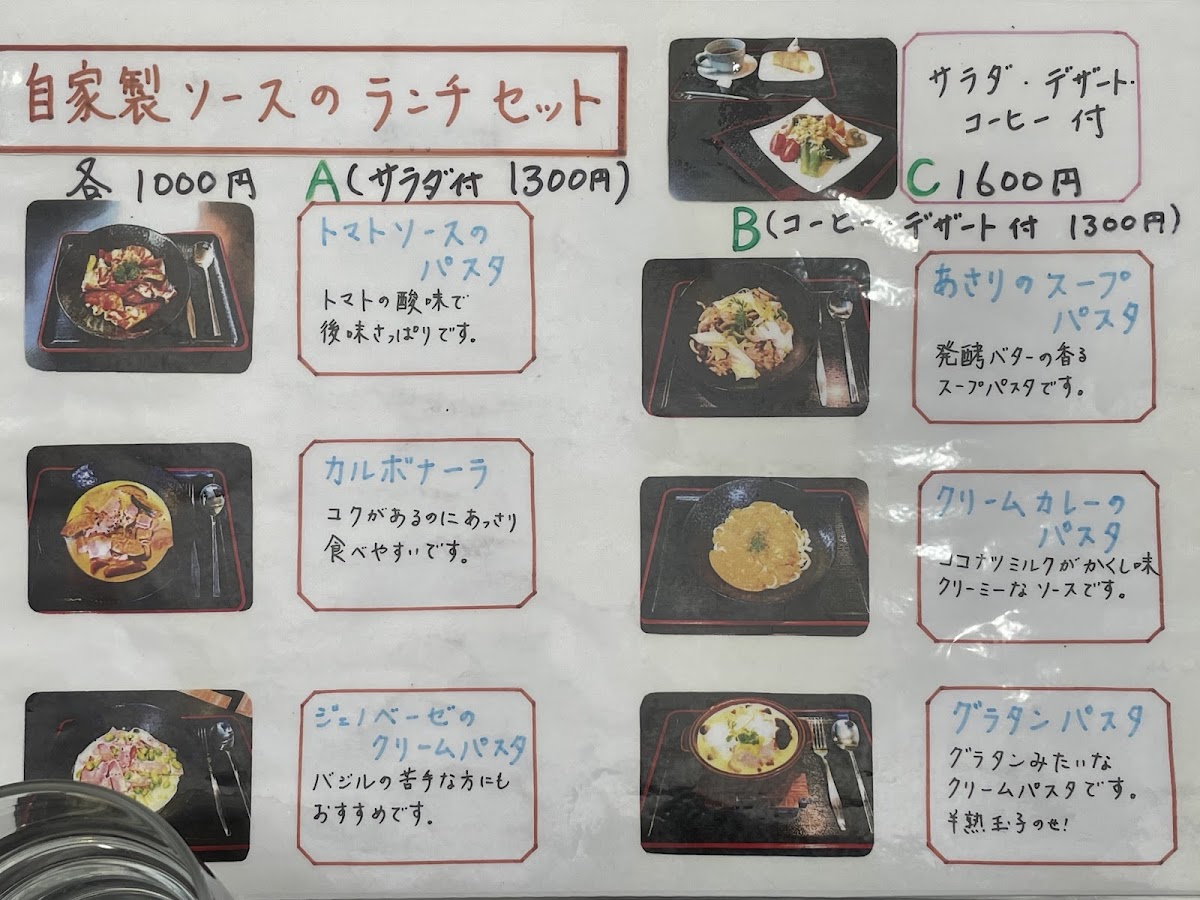 自家製ソースのランチセット
各 1000円 A(サラダ付 1300円)
サラダ・デザート・
コーヒー付
C 1600円
B(コーヒー・デザート付 1300円)
トマトソースの
パスタ
トマトの酸味で
後味さっぱりです。
カルボナーラ
コクがあるのにあっさり
食べやすいです。
ジェノベーゼの
クリームパスタ
バジルの苦手な方にも
おすすめです。
あさりのスープ
パスタ
発酵バターの香る
スープパスタです。
クリームカレーの
パスタ
ココナツミルクがかくし味
クリーミーなソースです。
グラタンパスタ
グラタンみたいな
クリームパスタです。
半熟玉子のせ!